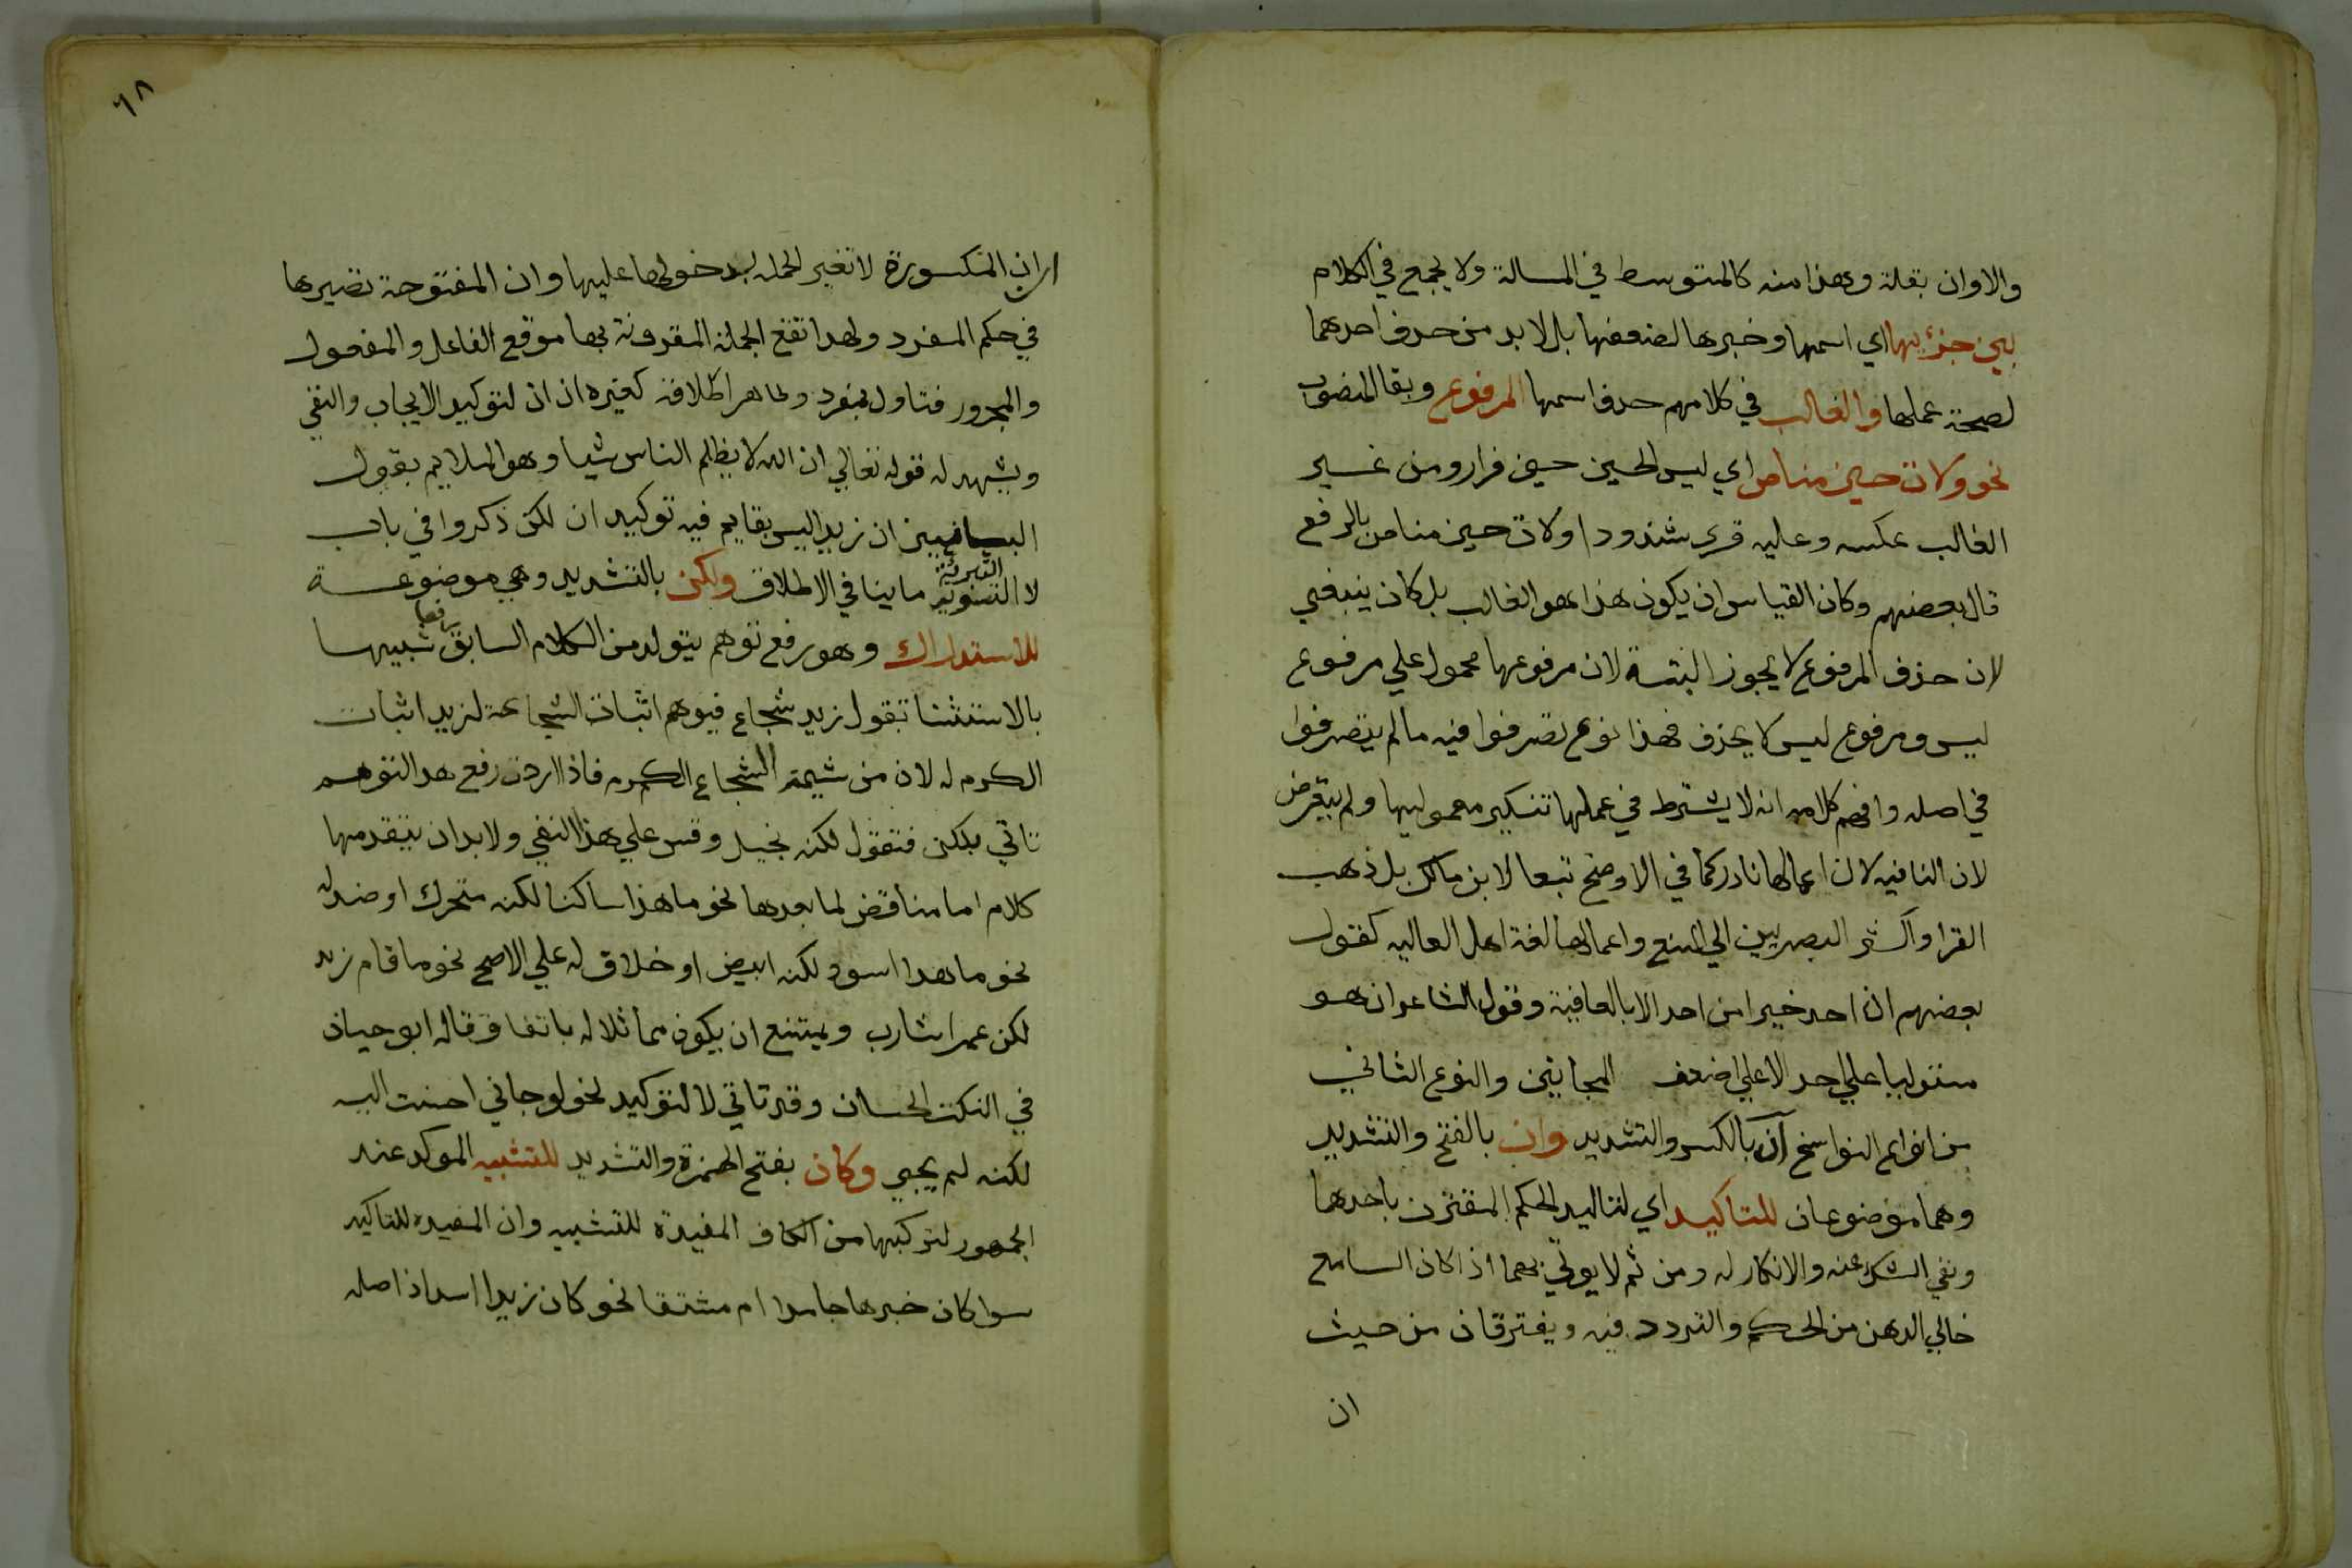 والاوان بقلة وهذا منه كالمتوسط في المسالة ولا يجمع في الكلام
بين جزئيها اي اسمها وخبرها لضعفها بل لا بد من حذف احدهما
لصحة عملها والغالب في كلامهم حذف اسمها المرفوع وبقا المنصوب
نحو ولات حين مناص اي ليس الحين حين فرار ومن غير
الغالب عكسه وعليه قري شذوذا ولات حين مناص بالرفع
قال بعضهم وكان القياس ان يكون هذا هو الغالب بل كان ينبغي
لان حذف المرفوع لا يجوز البتة لان مرفوعها محمول علي مرفوع
ليس ومرفوع ليس لا يحذف فهذا نوع تصرفوا فيه ما لم يتصرفوا
في اصله وافهم كلامه انه لا يشترط في عملها تنكير معموليها ولم يتعرض
لان النافيه لان اعمالها نادر كما في الاوضح تبعا لابن مالك بل ذهب
الفرا واكثر البصريين الي المنع واعمالها لغة اهل العاليه كقول
بعضهم ان احد خيرا من احد الا بالعافية وقول الشاعر ان هو
مستوليا علي احد الا علي اضعف المجانين والنوع الثاني
من انواع النواسخ ان بالكسر والتشديد وان بالفتح والتشديد
وهما موضوعان للتاكيد اي لتاكيد الحكم المقترن باحدهما
ونفي الشك عنه والانكار له ومن ثم لا يوتي بهما اذا كان السامع
خالي الذهن من الحكم والتردد فيه ويفترقان من حيث
ان
٦٨
ان المكسورة لا تغير الجملة بدخولها عليها وان المفتوحة تصيرها
في حكم المفرد ولهذا تقع الجملة المقرونة بها موقع الفاعل والمفعول
والمجرور فتاول بمفرد وظاهر اطلاقه كغيره ان ان لتوكيد الايجاب والنفي
ويشهد له قوله تعالي ان الله لا يظلم الناس شيا وهو الملايم بقول
البيانيين ان زيدا ليس بقايم فيه توكيد ان لكن ذكروا في باب
لا التبرئة ما ينافي الاطلاق ولكن بالتشديد وهي موضوعة
للاستدراك وهو رفع توهم يتولد من الكلام السابق رفعا شبيها
بالاستثنا تقول زيد شجاع فيوهم اثبات الشجاعة لزيد اثبات
الكرم له لان من شيمة الشجاع الكرم فاذا اردت رفع هذا التوهم
تاتي بلكن فتقول لكنه بخيل وقس علي هذا النفي ولا بد ان يتقدمها
كلام اما مناقض لما بعدها نحو ما هذا ساكنا لكنه متحرك او ضد له
نحو ما هذا اسود لكنه ابيض او خلاف له علي الاصح نحو ما قام زيد
لكن عمرا شارب ويمتنع ان يكون مماثلا له باتفاق قاله ابو حيان
في النكت الحسان وقد تاتي لا لتوكيد نحو لو جاني احسنت اليه
لكنه لم يجي وكان بفتح الهمزة والتشديد للتشبيه الموكد عند
الجمهور لتركبها من الكاف المفيدة للتشبيه وان المفيدة للتاكيد
سوا كان خبرها جامدا ام مشتقا نحو كان زيدا اسد اذ اصله